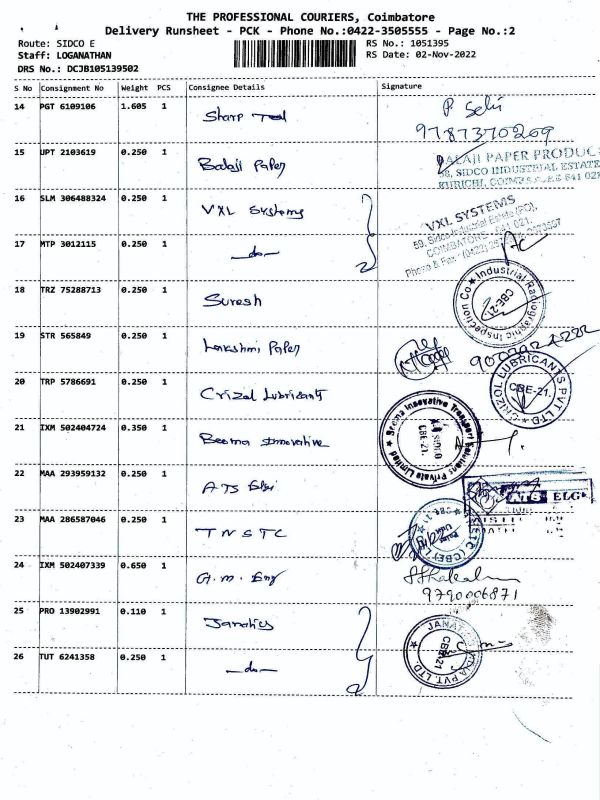 THE PROFESSIONAL COURIERS, Coimbatore
Delivery Runsheet - PCK - Phone No.:0422-3505555 - Page No.:2
Route: SIDCO E
RS No.: 1051395
Staff: LOGANATHAN
RS Date: 02-Nov-2022
DRS No.: DCJB105139502
S No Consignment No Weight PCS Consignee Details Signature
14 PGT 6109106 1.605 1 Sharp Tool P Selvi
9787370209
15 UPT 2103619 0.250 1 Balaji Paper BALAJI PAPER PRODUC
SIDCO INDUSTRIAL ESTATE
KURICHI, COIMBATORE 641 021
16 SLM 306488324 0.250 1 VXL Systems VXL SYSTEMS
59, Sidco Industrial Estate (PO),
COIMBATORE - 641 021.
Phone & Fax - (0422)
17 MTP 3012115 0.250 1 -do-
18 TRZ 75288713 0.250 1 Suresh Industrial Radiographic Inspection Co CBE-21.
19 STR 565849 0.250 1 Lakshmi Paper
20 TRP 5786691 0.250 1 Crizol Lubricants CRIZOL LUBRICANTS PVT LTD CBE-21.
21 IXM 502404724 0.350 1 Beema Innovative Beema Innovative Transport Solutions Private Limited SIDCO CBE-21.
22 MAA 293959132 0.250 1 ATS Elgi ATS ELGI
23 MAA 286587046 0.250 1 TNSTC
24 IXM 502407339 0.650 1 G.M. Eng
9790006871
25 PRO 13902991 0.110 1 Janatics JANATICS INDIA PVT. LTD. CBE-21
26 TUT 6241358 0.250 1 -do-